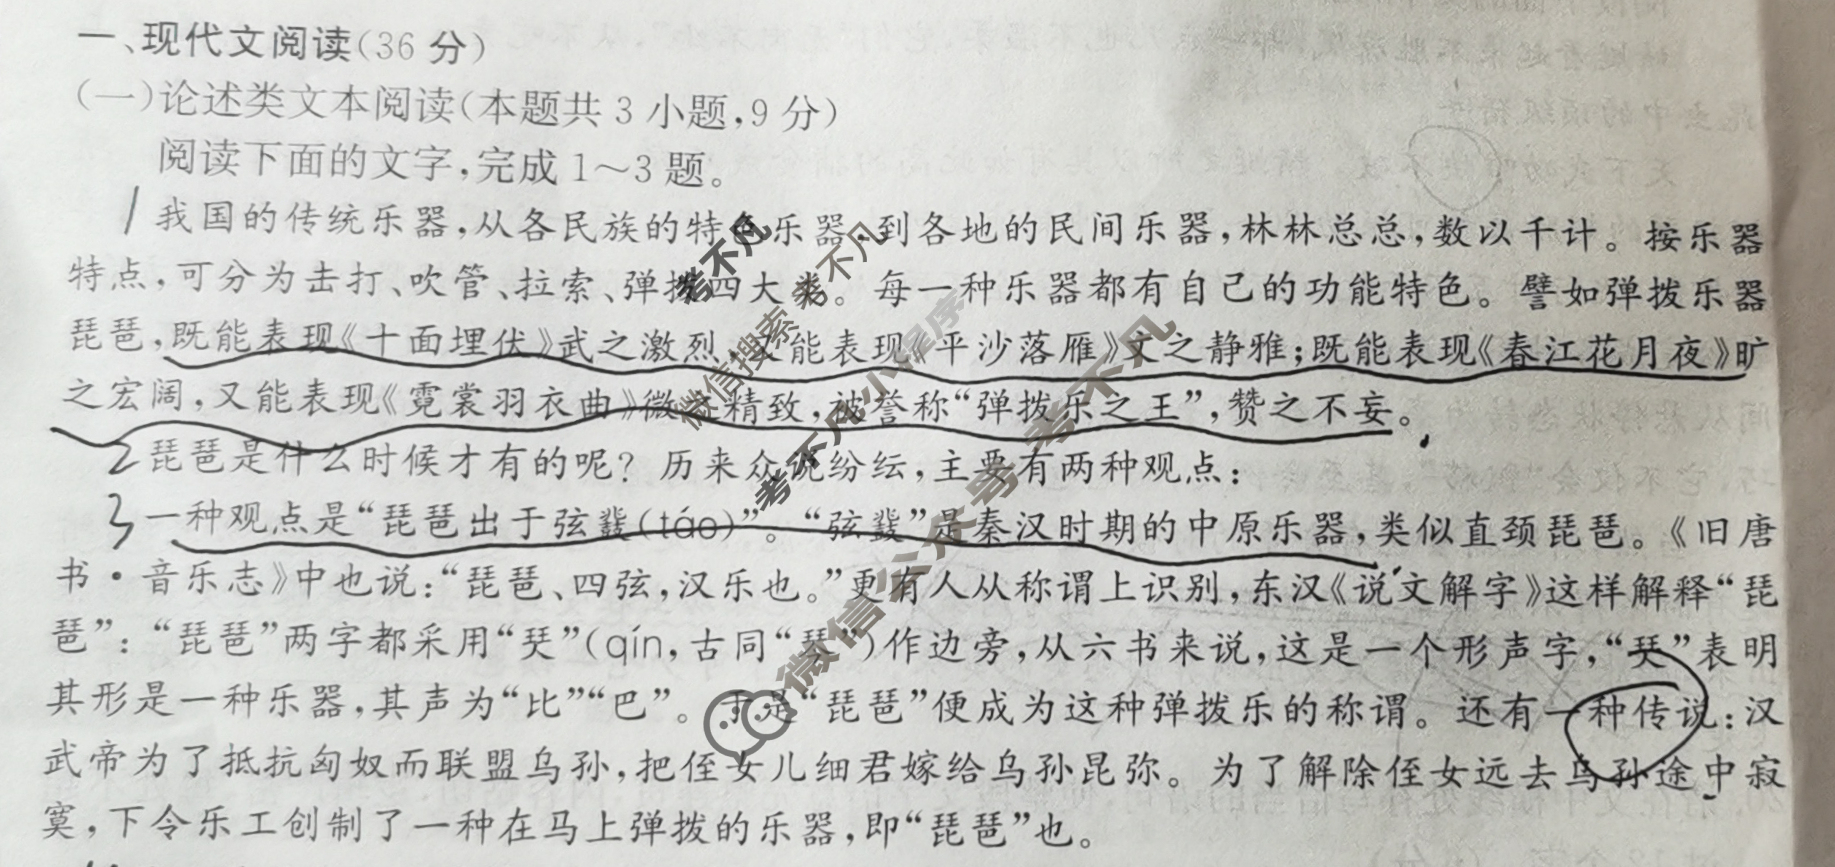 一、现代文阅读(36分)
(一)论述类文本阅读(本题共3小题,9分)
阅读下面的文字,完成1～3题。
1 我国的传统乐器,从各民族的特色乐器,到各地的民间乐器,林林总总,数以千计。按乐器
特点,可分为击打、吹管、拉索、弹拨四大类。每一种乐器都有自己的功能特色。譬如弹拨乐器
琵琶,既能表现《十面埋伏》武之激烈,又能表现《平沙落雁》文之静雅;既能表现《春江花月夜》旷
之宏阔,又能表现《霓裳羽衣曲》微之精致,被誉称“弹拨乐之王”,赞之不妄。
2 琵琶是什么时候才有的呢?历来众说纷纭,主要有两种观点:
3 一种观点是“琵琶出于弦鼗(táo)”。“弦鼗”是秦汉时期的中原乐器,类似直颈琵琶。《旧唐
书·音乐志》中也说:“琵琶、四弦,汉乐也。”更有人从称谓上识别,东汉《说文解字》这样解释“琵
琶”:“琵琶”两字都采用“珡”(qín,古同“琴”)作边旁,从六书来说,这是一个形声字,“珡”表明
其形是一种乐器,其声为“比”“巴”。于是“琵琶”便成为这种弹拨乐的称谓。还有一种传说:汉
武帝为了抵抗匈奴而联盟乌孙,把侄女儿细君嫁给乌孙昆弥。为了解除侄女远去乌孙途中寂
寞,下令乐工创制了一种在马上弹拨的乐器,即“琵琶”也。
考不凡
考不凡
微信搜索
小程序
考不凡
考不凡
微信公众号